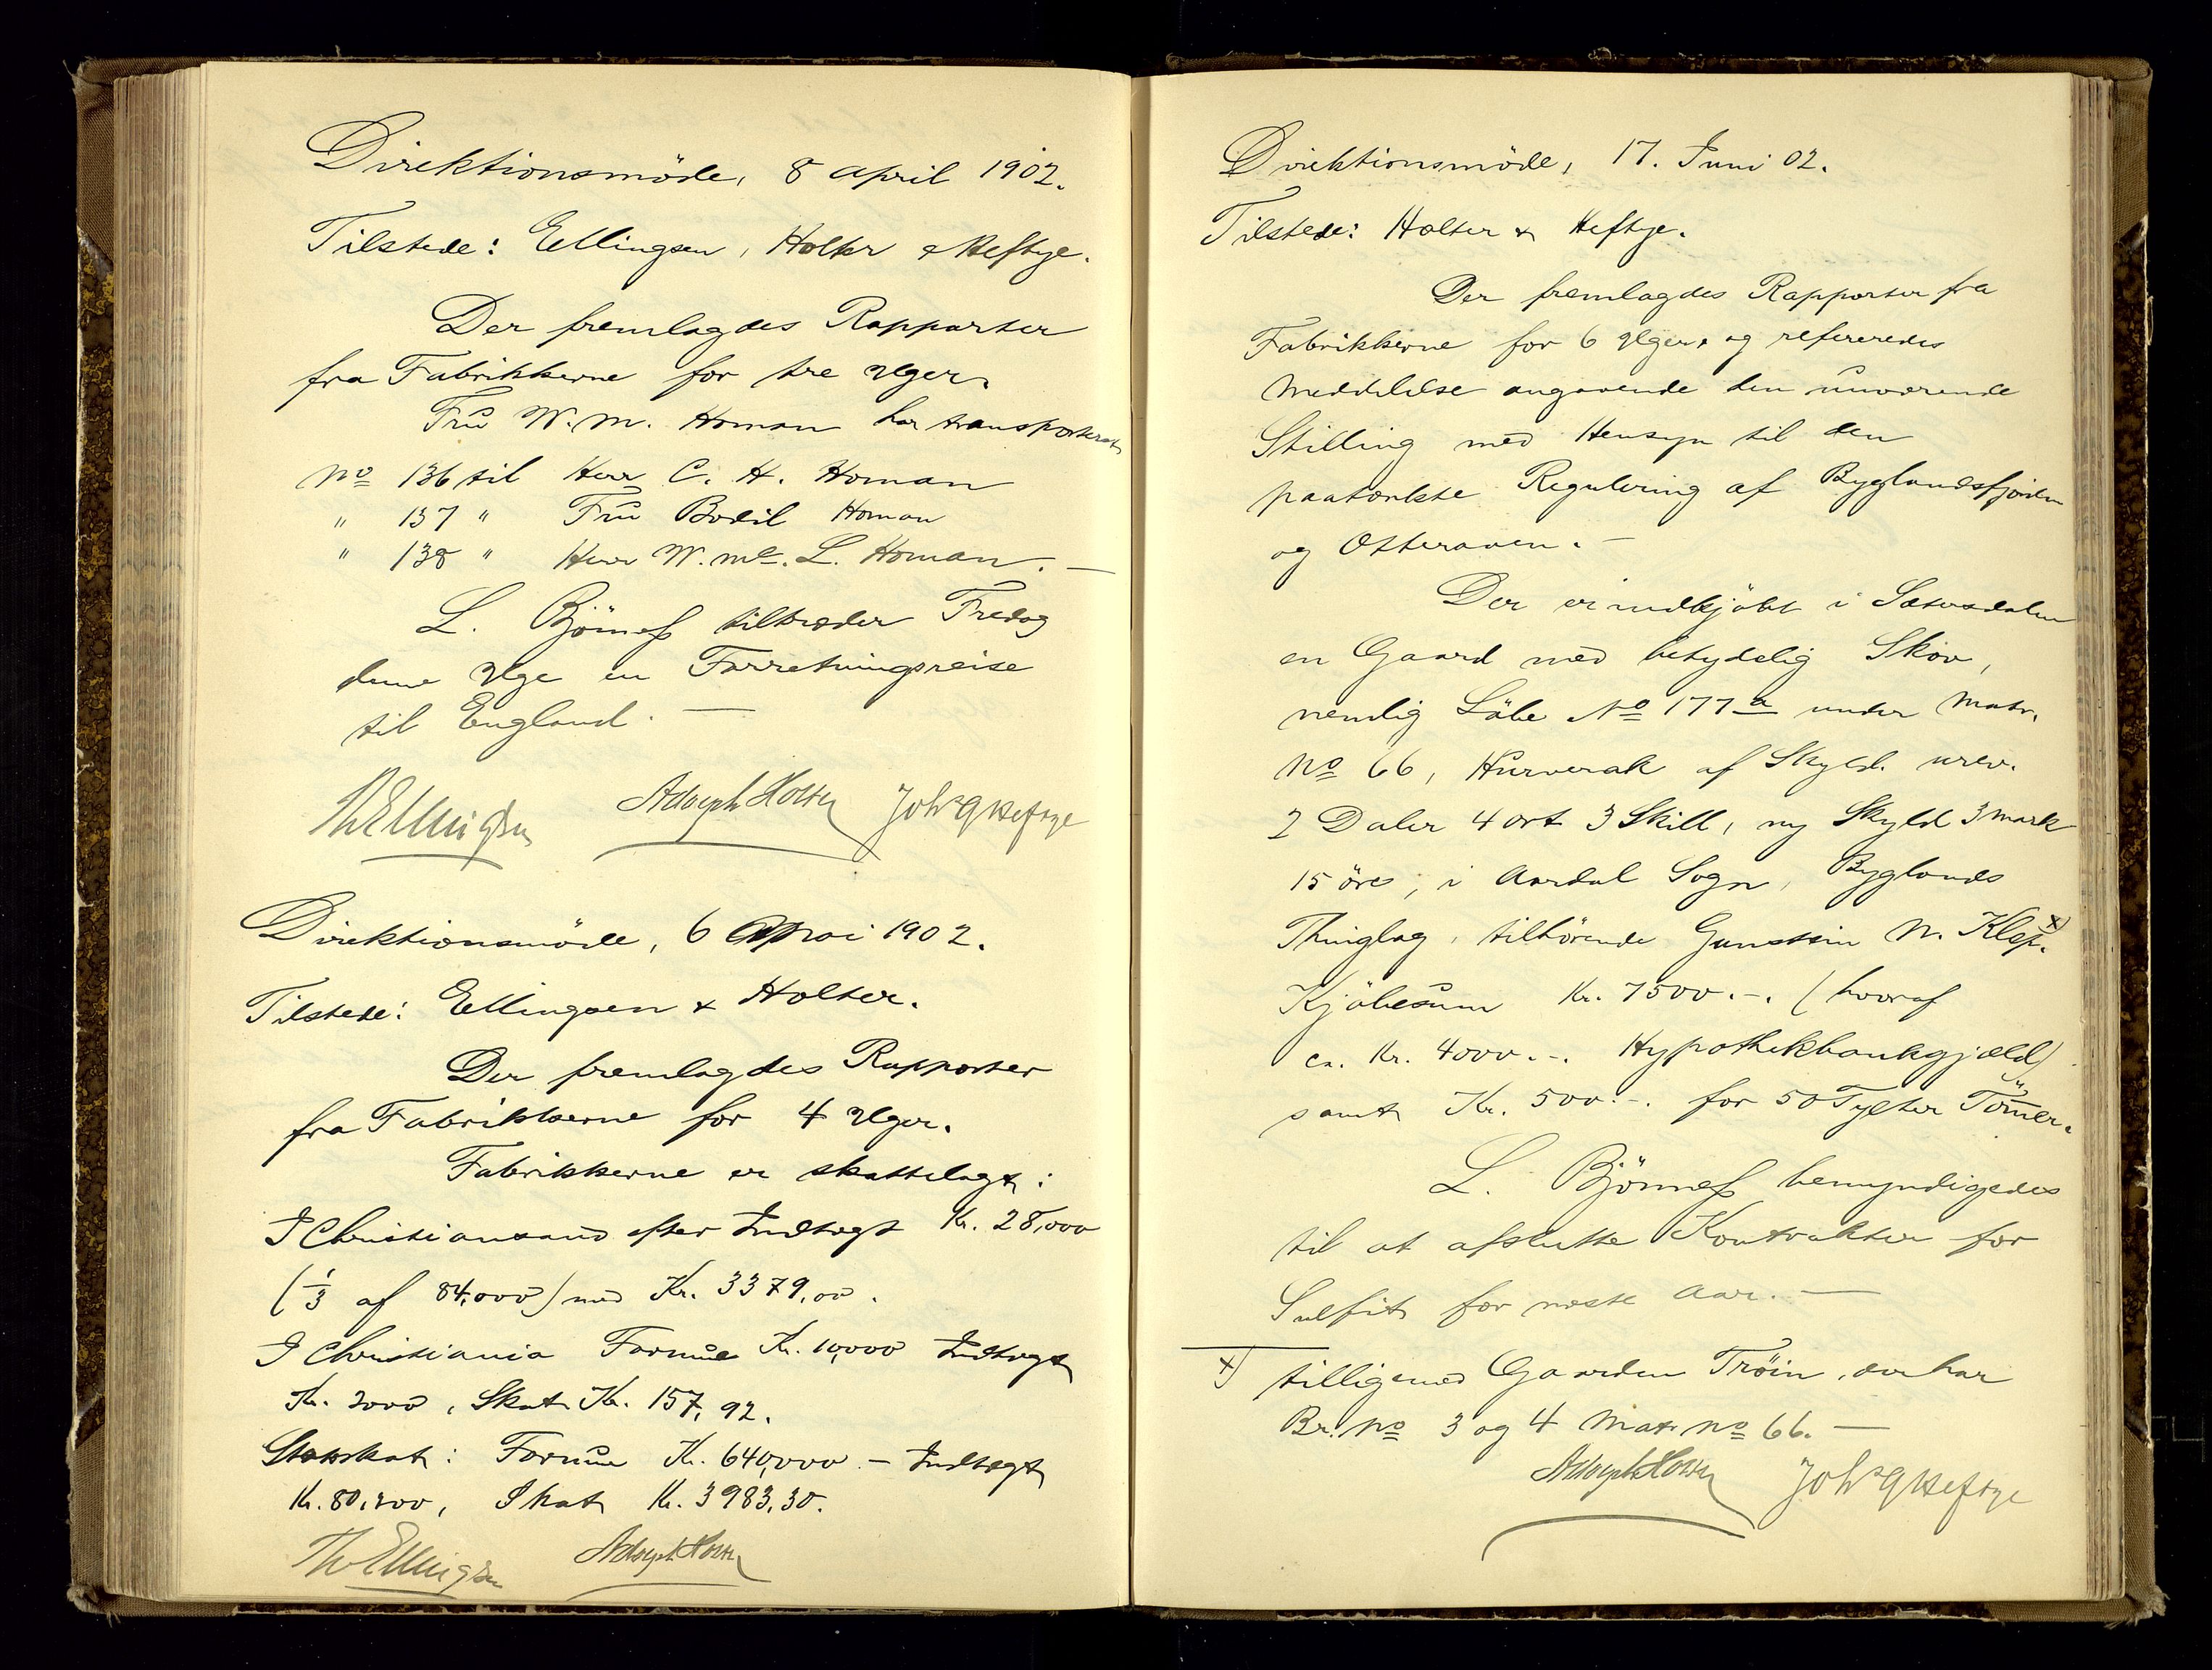 Direktionsmöde, 8 april 1902.
Tilstede: Ellingsen, Holter & Heftye.
Der fremlagdes Rapporter
fra Fabrikkerne for tre Uger.
Frŭ W. M. Homan har transporteret
No 136 til Herr C. H. Homan
" 137 " Frŭ Bodil Homan
" 138 " Herr W. Mc. L. Homan. —
L. Björness tiltræder Fredag
denne Uge en Forretningsreise
til England. —
Th Ellingsen Adolph Holter Joh s G Heftye
Direktionsmöde, 6 Mai 1902.
Tilstede: Ellingsen & Holter.
Der fremlagdes Rapporter
fra Fabrikkerne for 4 Uger.
Fabrikkerne er skattelagt:
I Christianssand efter Indtægt Kr. 28,000
(1/3 af 84,000) med Kr. 3379,00.
I Christiania Formŭe Kr. 10,000 Indtægt
Kr. 2000, Skat Kr. 157,92.
Statsskat: Formŭe Kr. 640,000 - Indtægt
Kr. 80,200, Skat Kr. 3983,30.
Th Ellingsen Adolph Holter
Direktionsmöde, 17. Juni 02.
Tilstede: Holter & Heftye.
Der fremlagdes Rapporter fra
Fabrikkerne for 6 Uger, og refereredes
Meddelelse angaaende den nŭværende
Stilling med Hensyn til den
paatænkte Regulering af Byglandsfjorden
og Otteraaen. —
Der er indkjöbt i Sætersdalen
en Gaard med betydelig Skov,
nemlig Löbe No 177 a under Matr.
No 66, Hŭrverak af Skyld. urev.
2 Daler 4 ort 3 Skill, ny Skyld 3 mark
15 öre, i Aardal Sogn, Byglands
Thinglag, tilhörende Gunstein N. Klep. x)
Kjöbesŭm Kr. 7500.-. (hvoraf
ca. Kr. 4000.-. Hypothekbankgjæld)
samt Kr. 500.-. for 50 Tylter Tömer.
L. Björness bemyndigedes
til at afslutte Kontrakter for
Sulfit for næste Aar. —
x) tilligemed Gaarden Tröin, der har
Br. No 3 og 4 Mat. No 66. —
Adolph Holter Joh s G Heftye